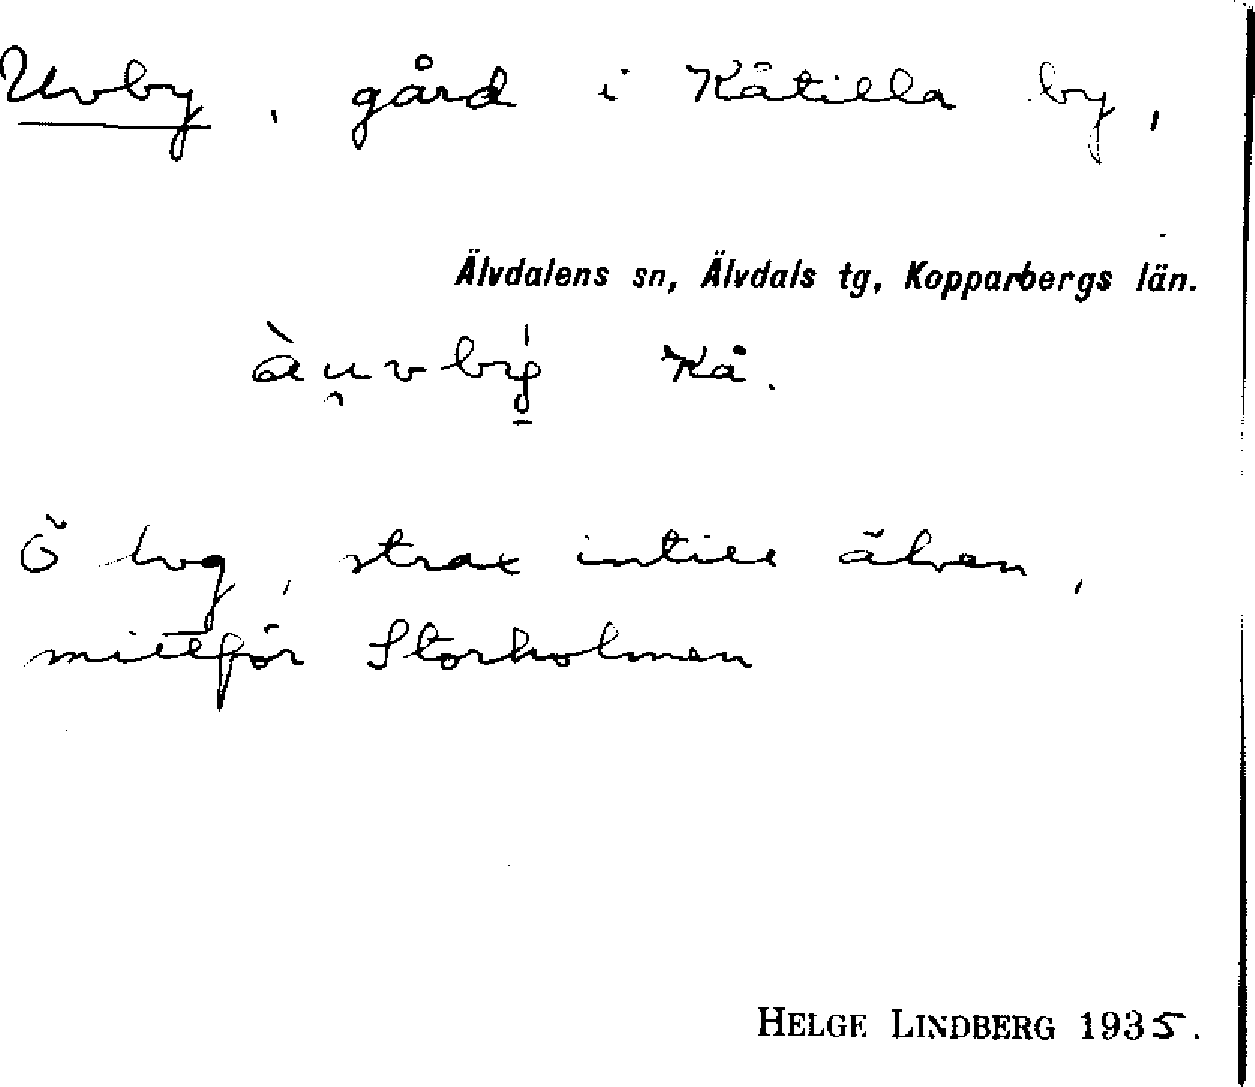 Uvby, gård i Kåtilla by,
Älvdalens sn, Älvdals tg, Kopparbergs län.
àu̯vbý̱ Kå.
Ö lvg, strax intill älven,
mittför Storholmen
HELGE LINDBERG 1935.